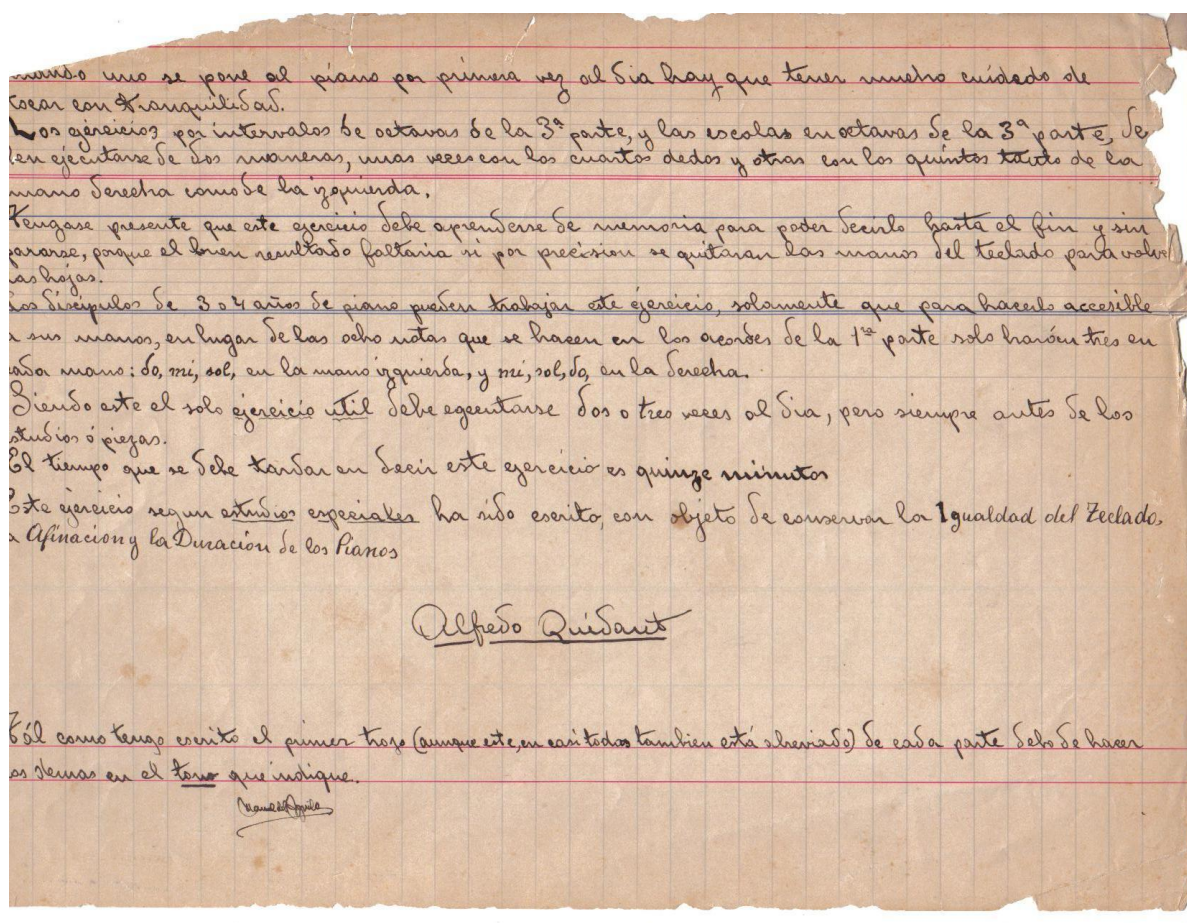 uando uno se pone al piano por primera vez al dia hay que tener mucho cuidado de
tocar con tranquilidad.
Los ejercicios por intervalos de octavas de la 3ª parte, y las escalas en octavas de la 3ª parte, de
ben ejecutarse de dos maneras, unas veces con los cuartos dedos y otras con los quintos tanto de la
mano derecha como de la izquierda.
Tengase presente que este ejercicio debe aprenderse de memoria para poder decirlo hasta el fin y sin
pararse, porque el buen resultado faltaria si por precision se quitaran las manos del teclado para volver
las hojas.
Los discipulos de 3 o 4 años de piano pueden trabajar este ejercicio, solamente que para hacerlo accesible
a sus manos, en lugar de las ocho notas que se hacen en los acordes de la 1ra parte solo harán tres en
cada mano: do, mi, sol, en la mano izquierda, y mi, sol, do, en la derecha.
Siendo este el solo ejercicio util debe egecutarse dos o tres veces al dia, pero siempre antes de los
studios ó piezas.
El tiempo que se debe tardar en decir este ejercicio es quinze minutos
Este ejercicio segun estudios especiales ha sido escrito, con objeto de conservar la Igualdad del Teclado,
a Afinación y la Duración de los Pianos
Alfredo Quidant
Tál como tengo escrito el primer trozo (aunque este, en casi todas tambien está abreviado) de cada parte debo de hacer
os demas en el tono que indique.